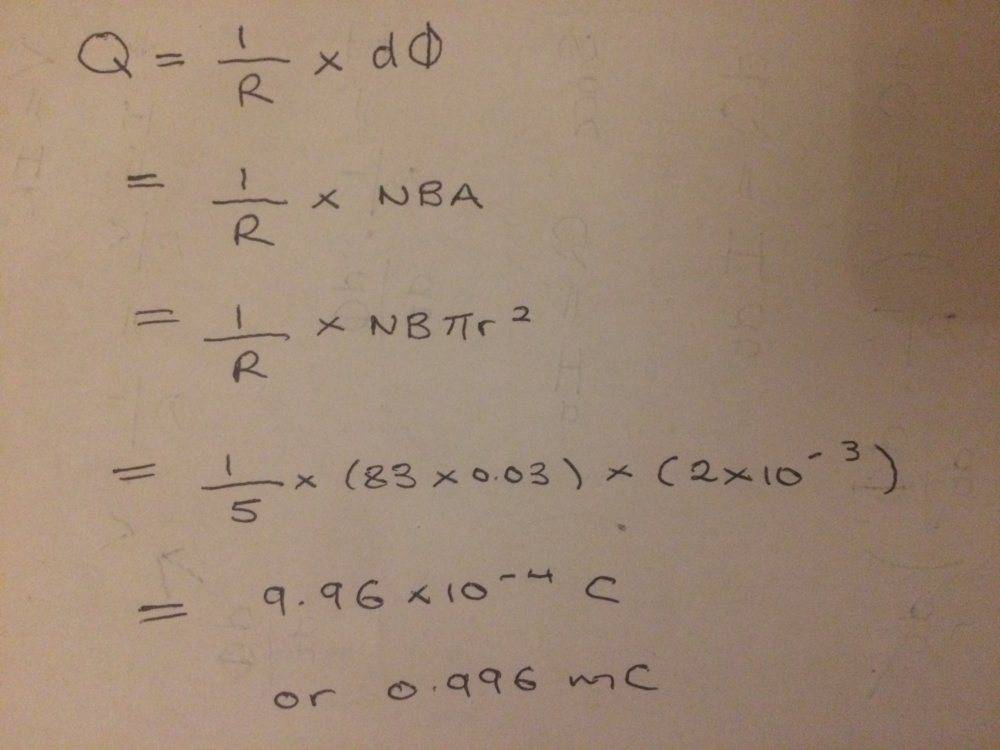 Q = 1/R × dΦ
= 1/R × NBA
= 1/R × NBπr²
= 1/5 × (83 × 0.03) × (2×10⁻³)
= 9.96 × 10⁻⁴ C
or 0.996 mC